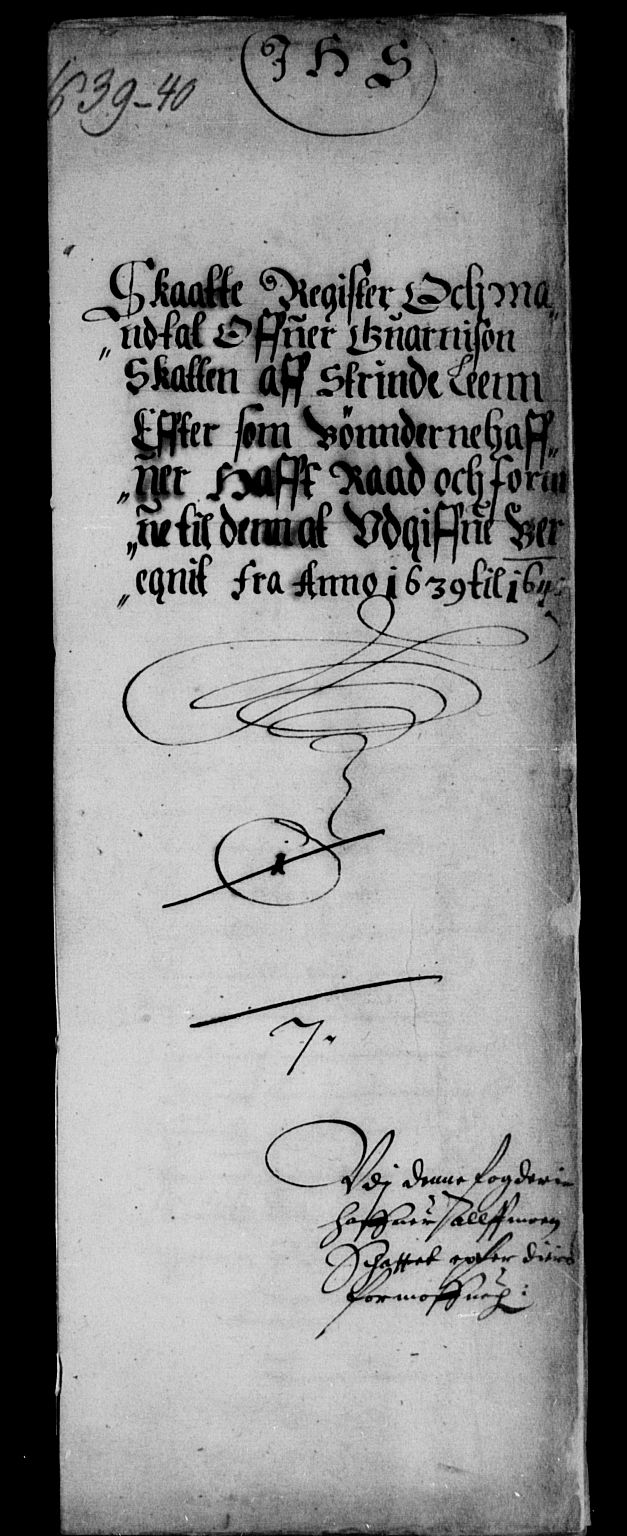 J H S
1639-40
Skaatte Register Och Ma„
„ndtal Offuer Guarnison
Skatten aff Strinde Leenn
Effter som Bönnderne haff„
„uer Hafft Raad och form
„ue til dennat Vdgiffue Ber
„egnit fra Anno 1639 til 164
1
7.
Vdj denne fogderie
haffuer allmoen
Schattet epter dieris
formoffue: